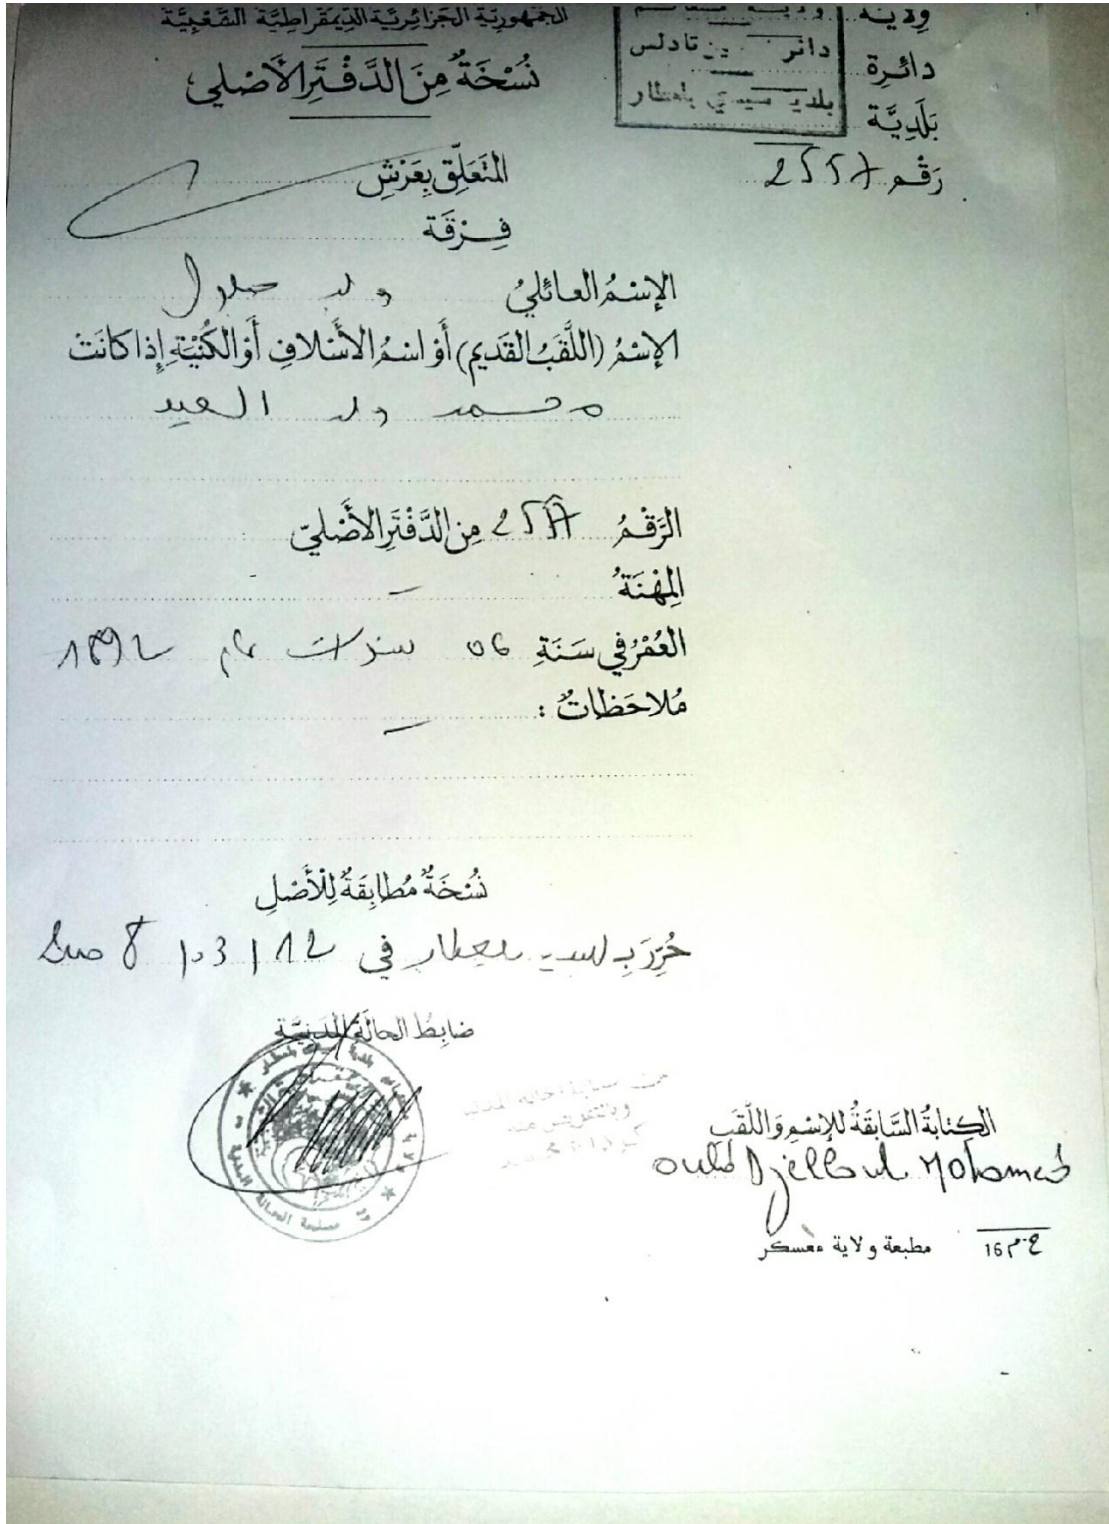 الجمهورية الجزائرية الديمقراطية الشعبية
نُسْخَةٌ مِنَ الدَّفْتَرِ الأَصْلي
ولاية
دائرة
دائر تادلس
بَلَدِيَّة
بلدية سيدي بلعطار
رَقْم
المتَعَلِّق بِعَرْشِ
فِرْقَة
الإسْمُ العائليُ ولد جلول
الإسْمُ (اللَّقَبُ القَديم) أَوْ اسْمُ الأَسْلافِ أَوْ الكُنْيَةِ إِذا كانَتْ
محمد ولد العيد
الرَقْمُ مِن الدَّفْتَرِ الأَصْليّ
المِهْنَةُ -
العُمْرُ في سَنَةِ 06 سنوات عام 1892
مُلاحَظاتٌ : -
نُسْخَةٌ مُطابِقَةٌ لِلْأَصْلِ
حُرِّرَ بِ بلعطار في 12
ضابِطُ الحالَةِ المَدَنِيَّة
الكِتابَةُ السَّابقَةُ للإسْمِ وَاللَّقَبِ
ould Djelloul Mohamed
ح.م 16 مطبعة ولاية معسكر